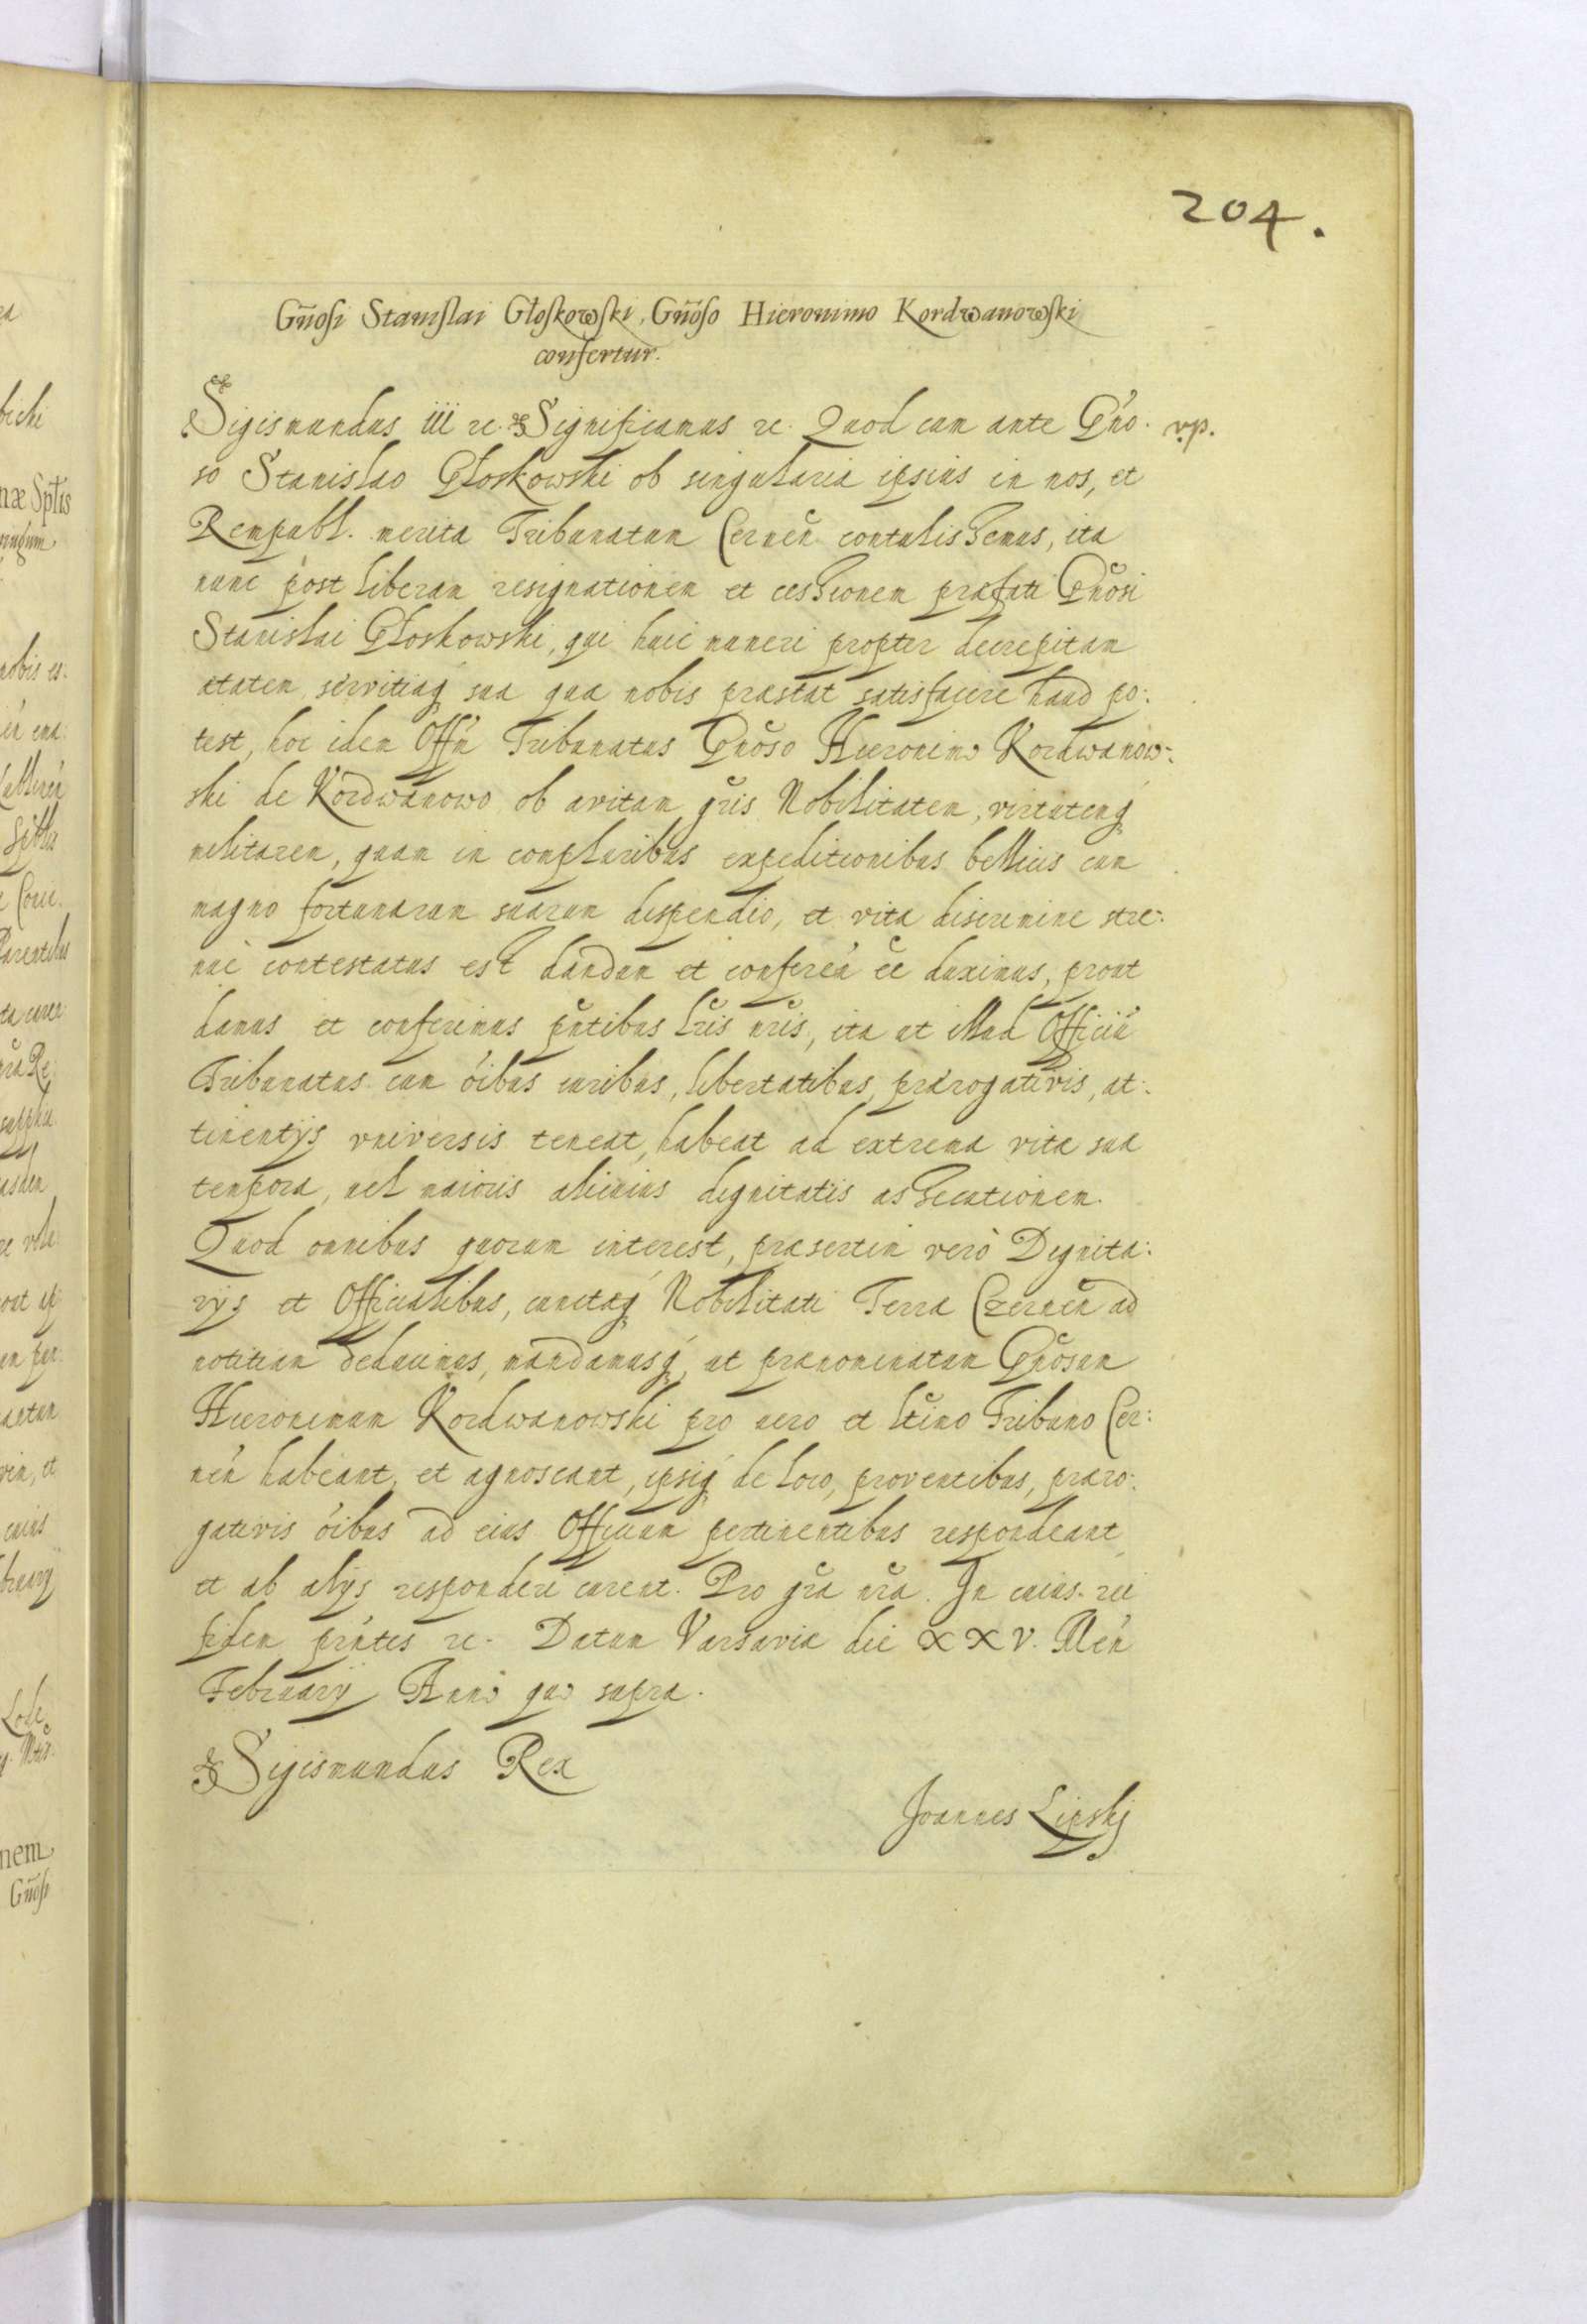 204.
Gn̄osi Stanislai Głoskowski, Gn̄oso Hieronimo Kordwanowski
confertur.
Sigismundus iii etc. Significamus etc. Quod cum ante Gn̄o- vp.
so Stanislao Głoskowski ob singularia ipsius in nos, et
Rempubl. merita Tribunatum Cernēn contulissemus, ita
nunc post liberam resignationem et cessionem præfati Gn̄osi
Stanislai Głoskowski, qui huic muneri propter decrepitam
ætatem, servitiaq̨ sua quæ nobis præstat satisfacere haud po:
test, hoc idem Offm̄ Tribunatus Gn̄oso Hieronimo Kordwanow:
ski de Kordwanowo ob avitam gñis Nobilitatem, virtutemq̨
militarem, quam in compluribus expeditionibus bellicis cum
magno fortunarum suarum dispendio, et vitæ discrimine stre:
nuè contestatus est dandum et conferēn ēe duximus, prout
damus et conferimus pn̄tibus lr̄is nr̄is, ita ut illud Officiū
Tribunatus cum ōibus iuribus, libertatibus, prærogativis, at:
tinentijs vniversis teneat, habeat ad extrema vitæ suæ
tempora, uel maioris alicuius dignitatis assecutionem.
Quod omnibus quorum interest, præsertim verò Dignita:
rijs et Officialibus, cunctæq̨ Nobilitati Terræ Czernēn ad
notitiam deducimus, mandamusq̨, ut prænominatum Gn̄osum
Hieronimum Kordwanowski pro uero et ltimo Tribuno Cer:
nēn habeant, et agnoscant, ipsiq̨ de loco, proventibus, præro:
gativis ōibus ad eius Officium pertinentibus respondeant
et ab alijs responderi curent. Pro gr̄a nr̄a. In cuius rei
fidem pr̄ntes etc. Datum Varsaviæ die XXV. Mēn
Februarij Anno quo supra.
Sigismundus Rex
Joannes Lipskj